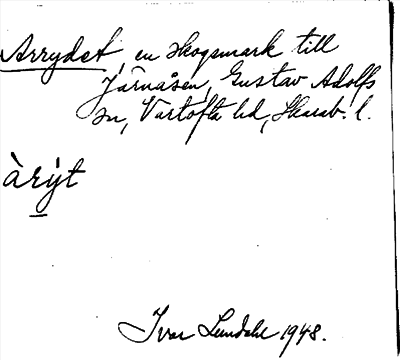 Arrydet, en skogsmark till
Järnåsen, Gustav Adolfs
sn, Vartofta hd, Skarab. l.
àry̆t
Ivar Lundahl 1948.